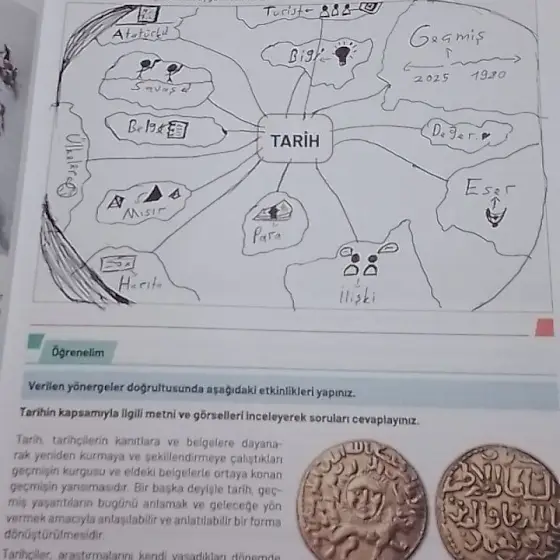 Turist
Atatürk
Bilgi
Geçmiş
2025 1920
Savaş
Belge
TARİH
Değer
Ülkeler
Eser
Mısır
Para
Harita
İlişki
Öğrenelim
Verilen yönergeler doğrultusunda aşağıdaki etkinlikleri yapınız.
Tarihin kapsamıyla ilgili metni ve görselleri inceleyerek soruları cevaplayınız.
Tarih, tarihçilerin kanıtlara ve belgelere dayana-
rak yeniden kurmaya ve şekillendirmeye çalıştıkları
geçmişin kurgusu ve eldeki belgelerle ortaya konan
geçmişin yansımasıdır. Bir başka deyişle tarih, geç-
miş yaşantıların bugünü anlamak ve geleceğe yön
vermek amacıyla anlaşılabilir ve anlatılabilir bir forma
dönüştürülmesidir.
Tarihçiler, araştırmalarını kendi yaşadıkları dönemde